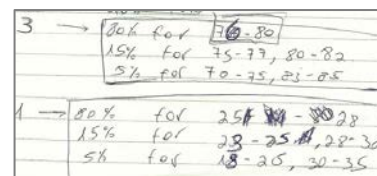 3 → 80% for 76-80
15% for 75-77, 80-82
5% for 70-75, 83-85
1 → 80% for 25 - 28
15% for 23-25, 28-30
5% for 18-25, 30-35